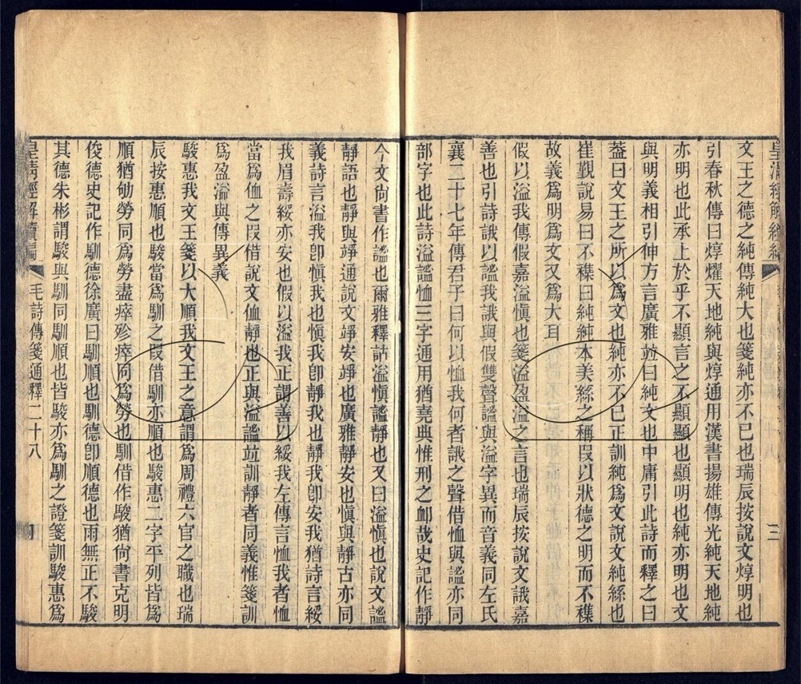 皇淸經解續編
三
文王之德之純傳純大也箋純亦不已也瑞辰按說文焞明也
引春秋傳曰焞燿天地純與焞通用漢書揚雄傳光純天地純
亦明也此承上於乎不顯言之不顯顯也顯明也純亦明也文
與明義相引伸方言廣雅竝曰純文也中庸引此詩而釋之曰
葢曰文王之所以爲文也純亦不已正訓純爲文說文純絲也
崔覲說易曰不襍曰純純本美絲之稱叚以狀德之明而不襍
故義爲明爲文又爲大耳
假以溢我傳假嘉溢愼也箋溢盈溢之言也瑞辰按說文誐嘉
善也引詩誐以謐我誐與假雙聲謐與溢字異而音義同左氏
襄二十七年傳君子曰何以恤我何者誐之聲借恤與謐亦同
部字也此詩溢謐恤三字通用猶堯典惟刑之卹哉史記作靜
今文尙書作謐也爾雅釋詁溢愼謐靜也又曰溢愼也說文謐
靜語也靜與竫通說文竫安竫也廣雅靜安也愼與靜古亦同
義詩言溢我卽愼我也愼我卽靜我也靜我卽安我猶詩言綏
我眉壽綏亦安也假以溢我正謂善以綏我左傳言恤我者恤
當爲侐之叚借說文侐靜也正與溢謐竝訓靜者同義惟箋訓
爲盈溢與傳異義
駿惠我文王箋以大順我文王之意謂爲周禮六官之職也瑞
辰按惠順也駿當爲馴之叚借馴亦順也駿惠二字平列皆爲
順猶劬勞同爲勞盡瘁殄瘁同爲勞也馴借作駿猶尙書克明
俊德史記作馴德徐廣曰馴順也馴德卽順德也雨無正不駿
其德朱彬謂駿與馴同馴順也皆駿亦爲馴之證箋訓駿惠爲
皇淸經解續編
毛詩傳箋通釋二十八